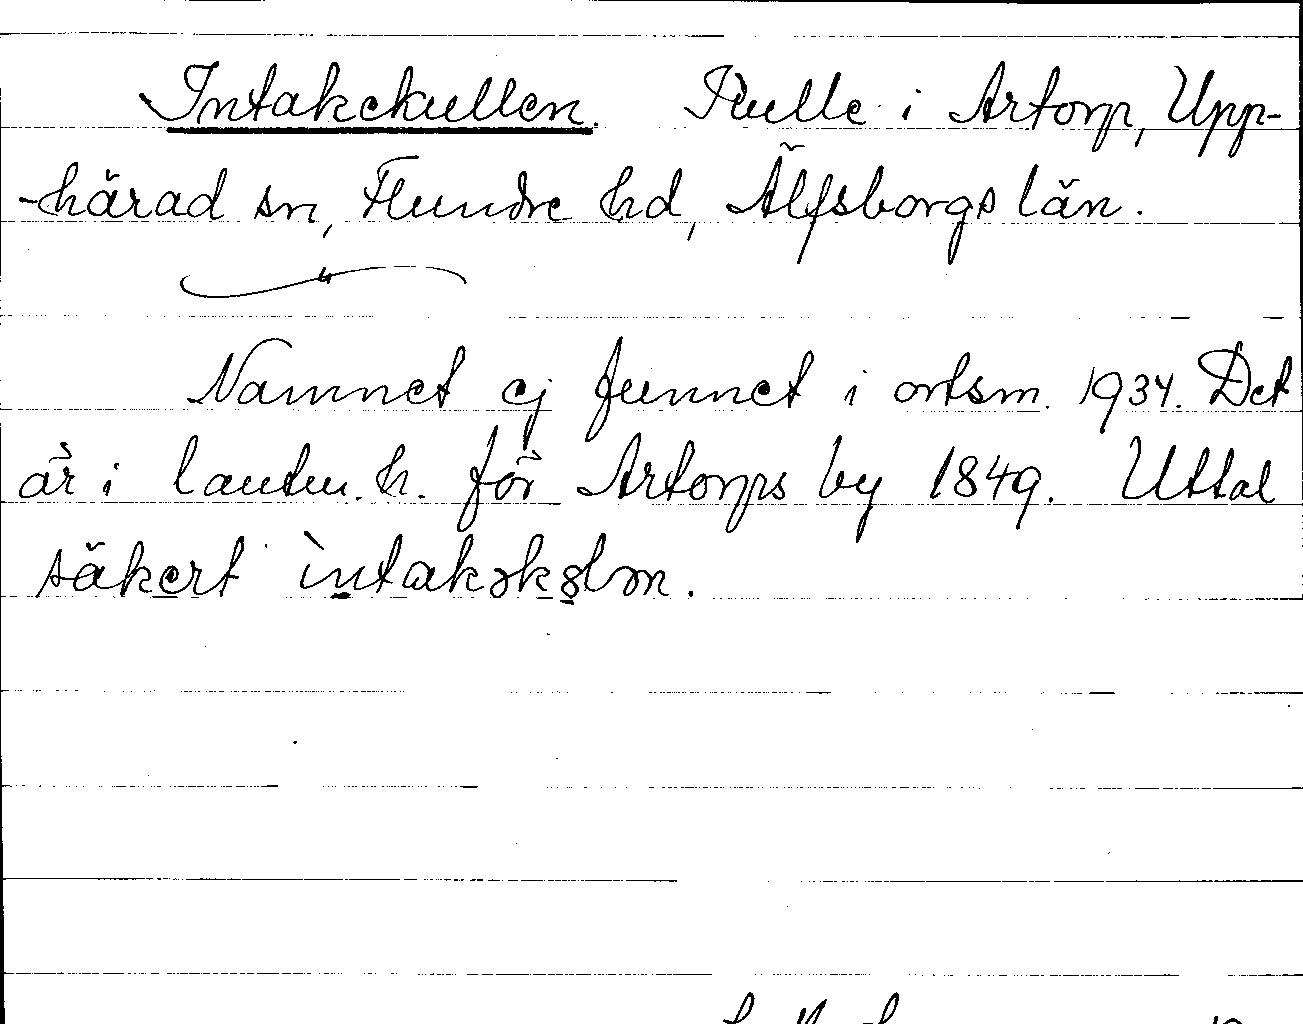 Intakekullen. Kulle i Artorp, Upp-
-härad sn, Flundre hd, Älfsborgs län.
Namnet ej funnet i ortsm. 1934. Det
är i lantm. h. för Artorps by 1849. Uttal
säkert ìntakəkɷlən.